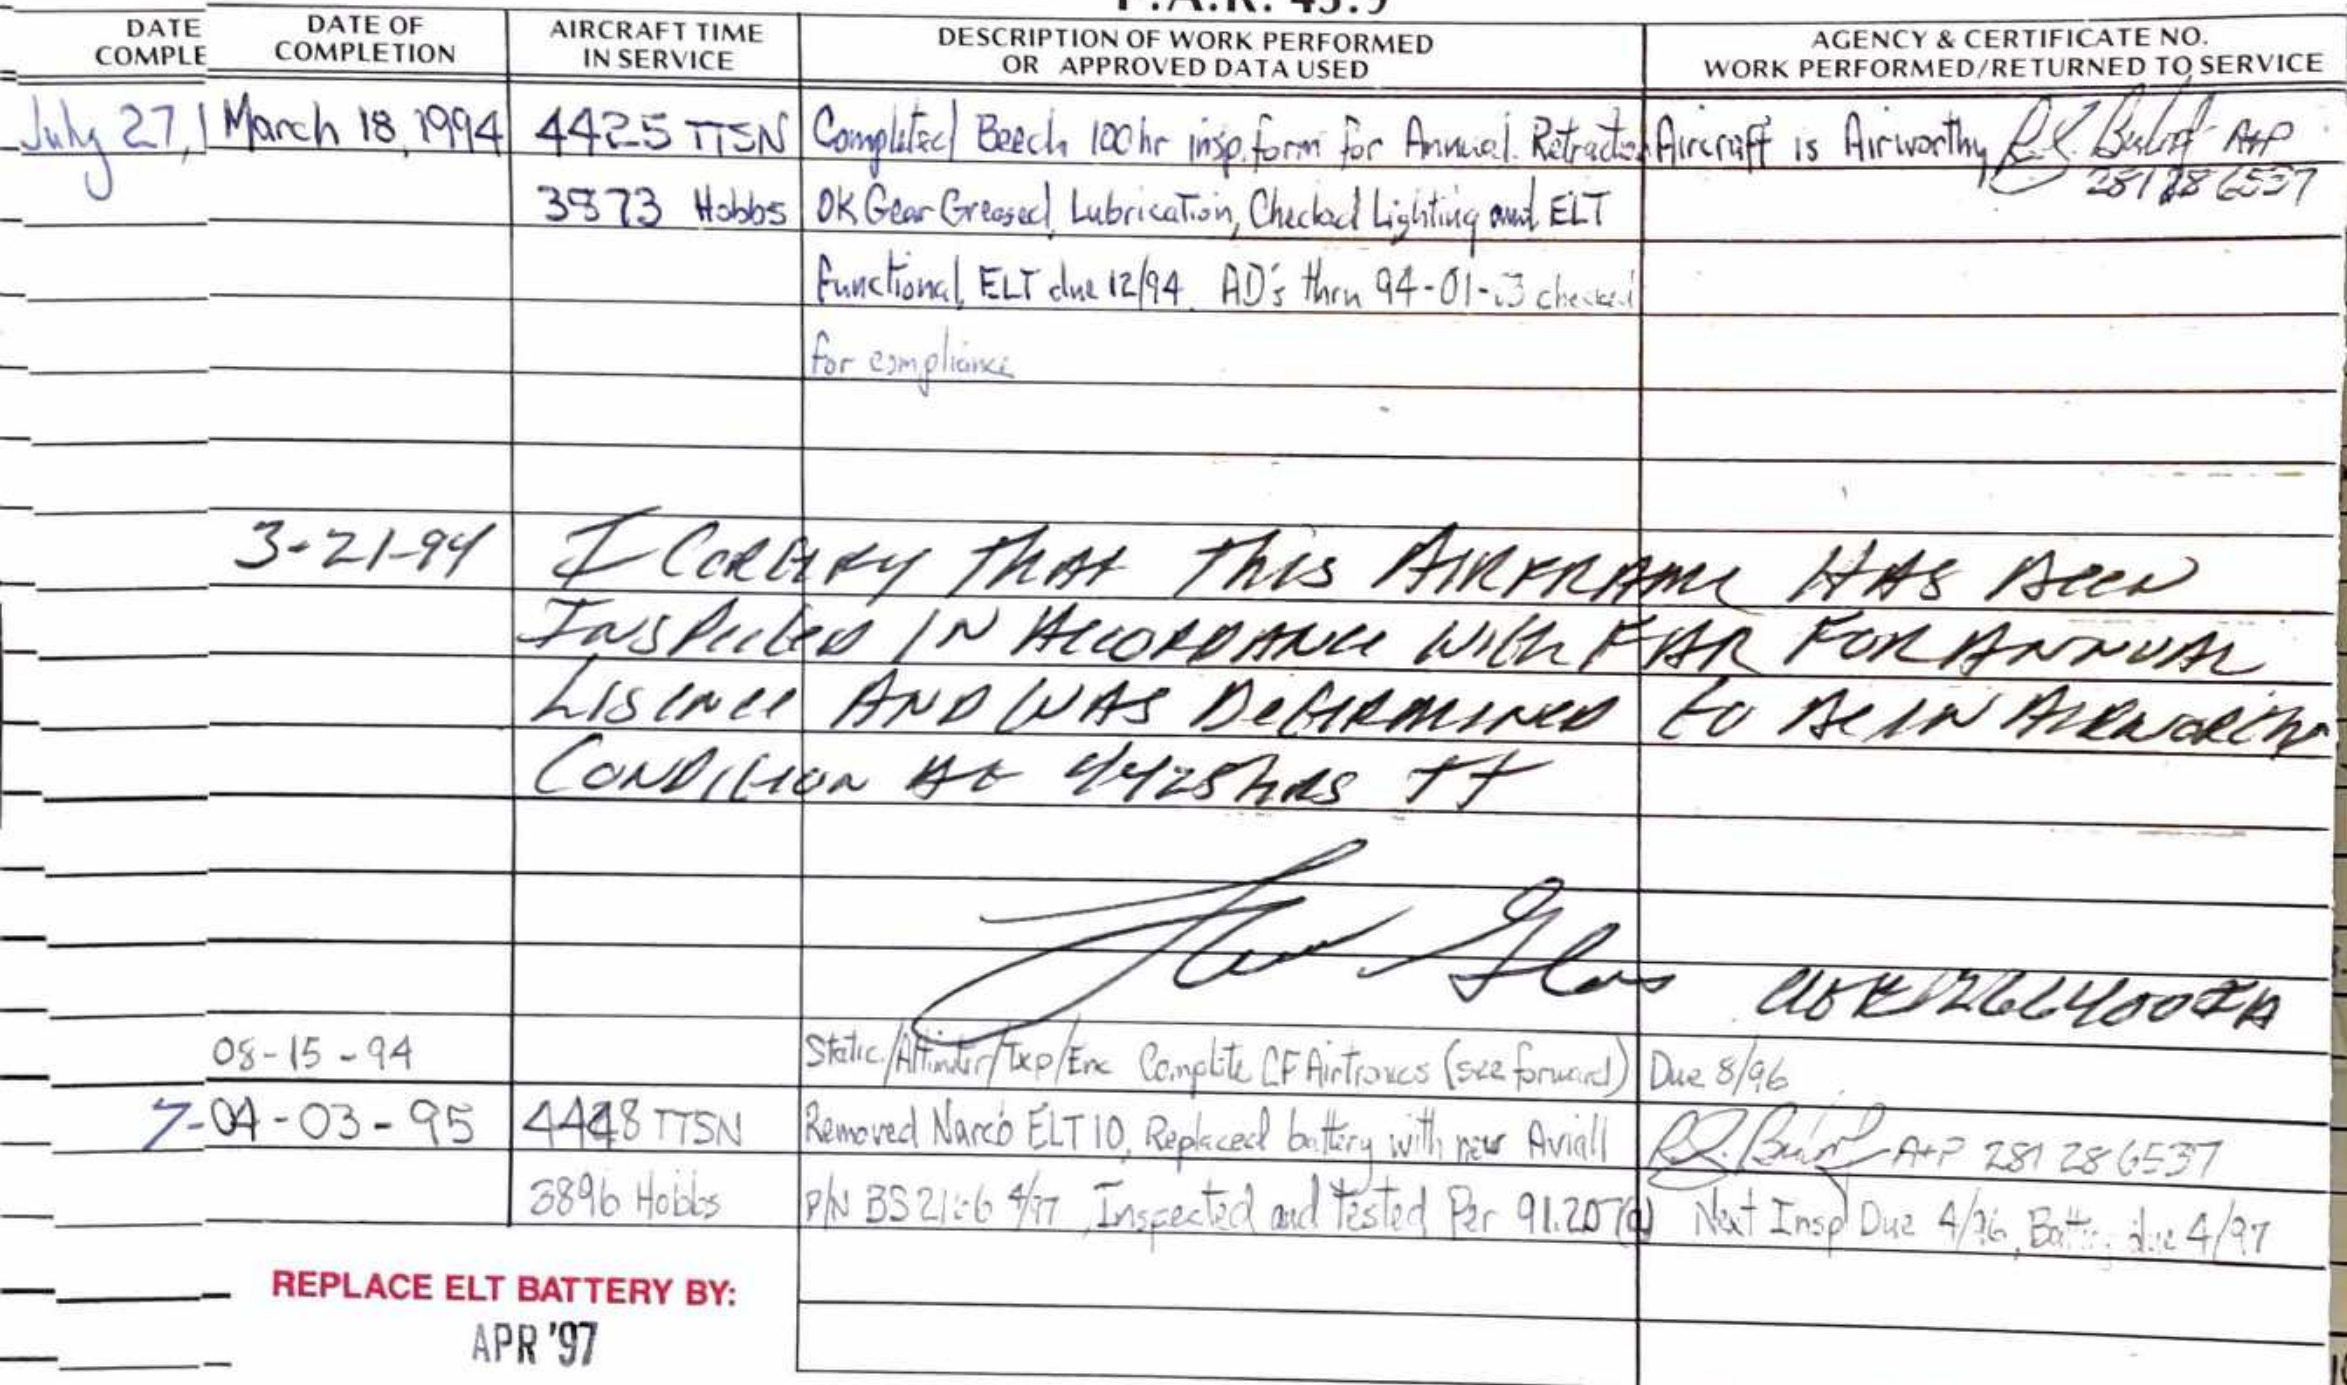 F.A.R. 43.9
DATE COMPLE
DATE OF COMPLETION
AIRCRAFT TIME IN SERVICE
DESCRIPTION OF WORK PERFORMED OR APPROVED DATA USED
AGENCY & CERTIFICATE NO. WORK PERFORMED/RETURNED TO SERVICE
July 27, March 18, 1994 4425 TTSN Completed Beech 100hr insp. form for Annual. Retraction Aircraft is Airworthy A+P
3873 Hobbs OK Gear Greased, Lubrication, Checked Lighting and ELT 281 28 6537
functional, ELT due 12/94. AD's thru 94-01- checked
for compliance
3-21-94 I Certify that this AIRFRAME HAS Been
Inspected IN Accordance with FAR FOR ANNUAL
Lisence AND WAS Determined to Be IN Airworthy
Condition At 4425 hrs TT
08-15-94 Static/Altimeter/Txp/Enc Complete CF Airtronics (see forward) Due 8/96
7- 04-03-95 4448 TTSN Removed Narco ELT 10, Replaced battery with new Aviall A+P 281 28 6537
3896 Hobbs P/N 4/97, Inspected and Tested Per 91.207(d) Next Insp Due 4/96, Battery due 4/97
REPLACE ELT BATTERY BY:
APR '97